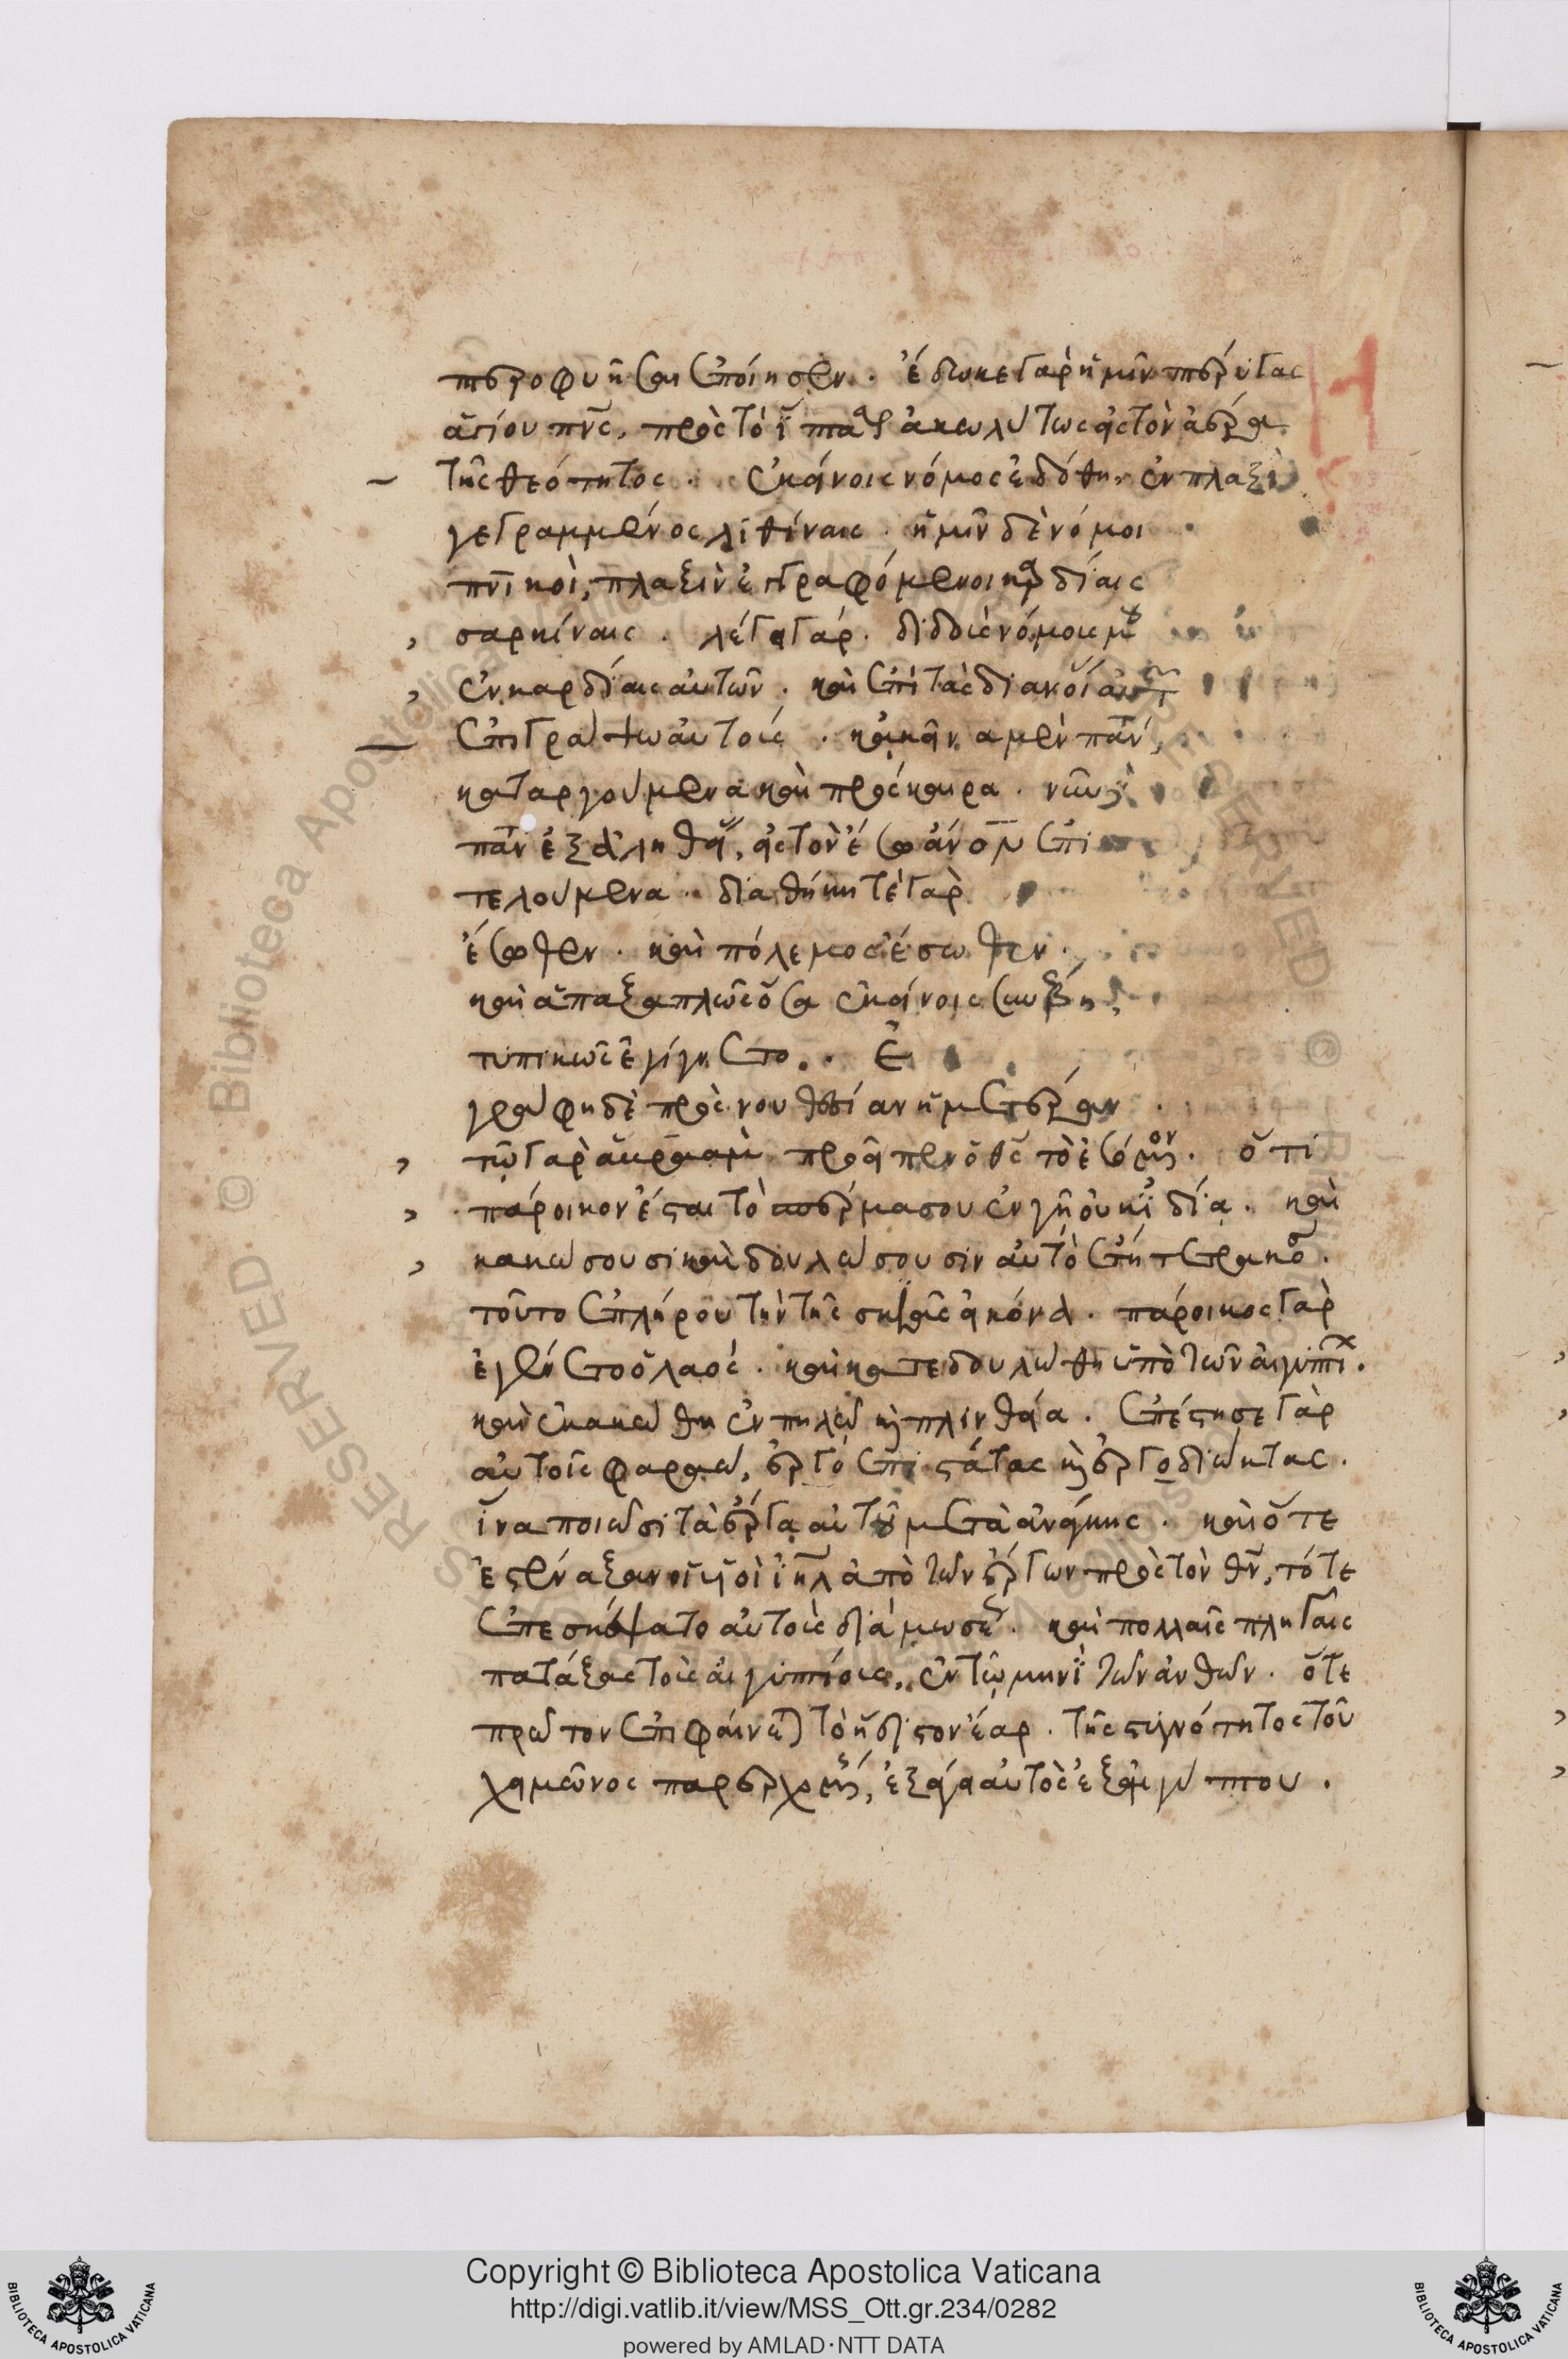 πτεροφυῆσαι ἐποίησεν. ἔδωκε γὰρ ἡμῖν πτέρυγας
ἁγίου πνς, πρὸς τὸ ἵπτασθαι ἀκωλύτως εἰς τὸν ἀέρα
τῆς θεότητος. ἐκείνοις νόμος ἐδόθη, ἐν πλαξὶ
γεγραμμένος λιθίναις. ἡμῖν δὲ νόμοι
πνικοὶ, πλαξὶν ἐγγραφόμενοι καρδίαις
σαρκίναις. λέγει γάρ. διδοὺς νόμους μου
ἐν καρδίαις αὐτῶν. καὶ ἐπὶ τὰς διανοίας αὐτῶν
ἐπιγράψω αὐτούς. κἀκεῖνα μὲν πάντα,
καταργούμενα καὶ πρόσκαιρα. νῦν δὲ
πάντα ἐξ ἀληθείας, εἰς τὸν ἔσω ἄνον ἐπι
τελούμενα. διαθήκη τὲ γὰρ
ἔσωθεν. καὶ πόλεμος ἔσωθεν.
καὶ ἁπαξαπλῶς ὅσα ἐκείνοις συνέβη,
τυπικῶς ἐγίνετο.
γράφη δὲ πρὸς νουθεσίαν ἡμετέραν
τῷ γὰρ ἀβραὰμ προεῖπεν ὁ θς τὸ ἐσόμενον. ὅτι
πάροικον ἔσται τὸ σπέρμα σου ἐν γῆ οὐκ ἰδία. καὶ
κακώσουσι καὶ δουλώσουσιν αὐτὸ ἔτη τετρακόσια.
τοῦτο ἐπλήρου τὴν τῆς σκιᾶς εἰκόνα. πάροικος γὰρ
ἐγένετο ὁ λαός. καὶ κατεδουλώθη ὑπὸ τῶν αἰγυπτίων.
καὶ ἐκακώθη ἐν πηλῶ καὶ πλινθεία. ἐπέστησε γὰρ
αὐτοῖς φαραὼ, ἐργοεπιστάτας καὶ ἐργοδιώκτας.
ἵνα ποιῶσι τὰ ἔργα αὐτοῦ μετὰ ἀνάγκης. καὶ ὅτε
ἐστέναξαν οἱ υἱοὶ ἰηλ ἀπὸ τῶν ἔργων πρὸς τὸν θν, τότε
ἐπεσκέψατο αὐτοὺς διὰ μωσέως. καὶ πολλαῖς πληγαῖς
πατάξας τοὺς αἰγυπτίους, ἐν τῷ μηνὶ τῶν ἀνθῶν. ὅτε
πρῶτον ἐπιφαίνεται τὸ ἥδιστον ἔαρ. τῆς στυγνότητος τοῦ
χειμῶνος παρερχομένης, ἐξήγαγεν αὐτοὺς ἐξ αἰγύπτου.
Copyright © Biblioteca Apostolica Vaticana
http://digi.vatlib.it/view/MSS_Ott.gr.234/0282
powered by AMLAD·NTT DATA